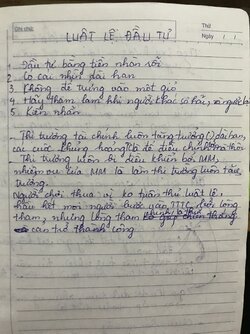 Ghi chú:
Thứ
Ngày / /
LUẬT LỆ ĐẦU TƯ
1 Đầu tư bằng tiền nhàn rỗi
2 Có cái nhìn dài hạn
3 Không để trứng vào một giỏ
4 Hãy tham lam khi người khác sợ hãi, và
5 Kiên nhẫn
Thị trường tài chính luôn tăng trưởng () dài hạn,
các cuộc khủng hoảng là để điều chỉnh
Thị trường luôn bị điều khiển bởi MM,
nhiệm vụ của MM là làm thị trường luôn tăng
trưởng.
Người chơi thua vì ko tuân thủ luật lệ,
hầu hết mọi người bước vào TTTC bởi lòng
tham, nhưng lòng tham
cản trở thành công